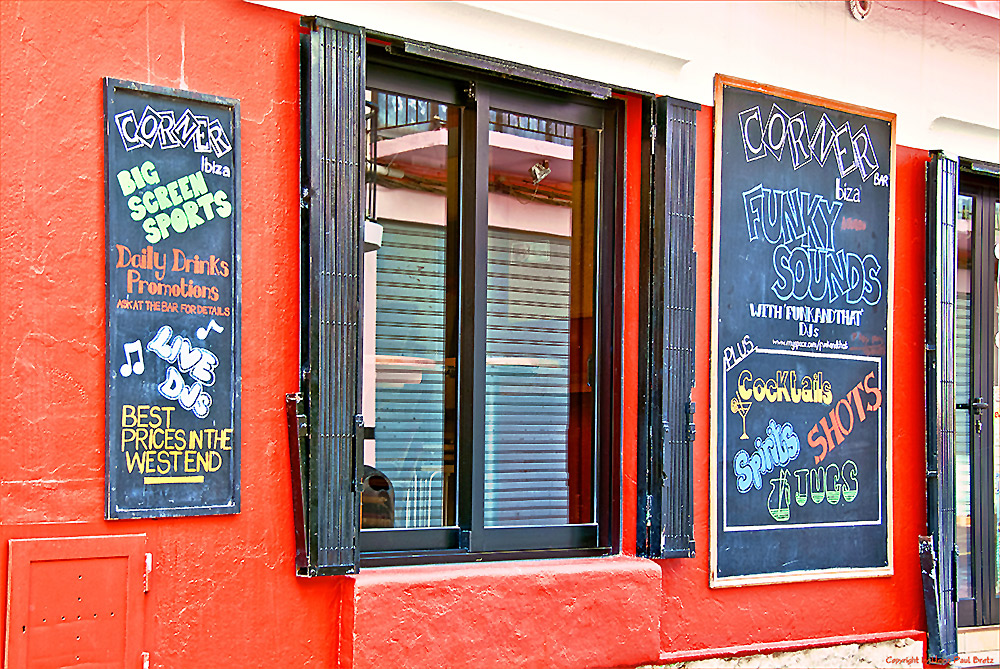 CORNER
Ibiza
BIG
SCREEN
SPORTS
Daily Drinks
Promotions
ASK AT THE BAR FOR DETAILS
LIVE
DJs
BEST
PRICES IN THE
WEST END
CORNER
BAR
Ibiza
FUNKY
SOUNDS
WITH 'FUNKANDTHAT'
DJs
www.myspace.com/funkandthat
PLUS
Cocktails
SHOTS
Spirits
JUGS
Copyright Paul Bretz